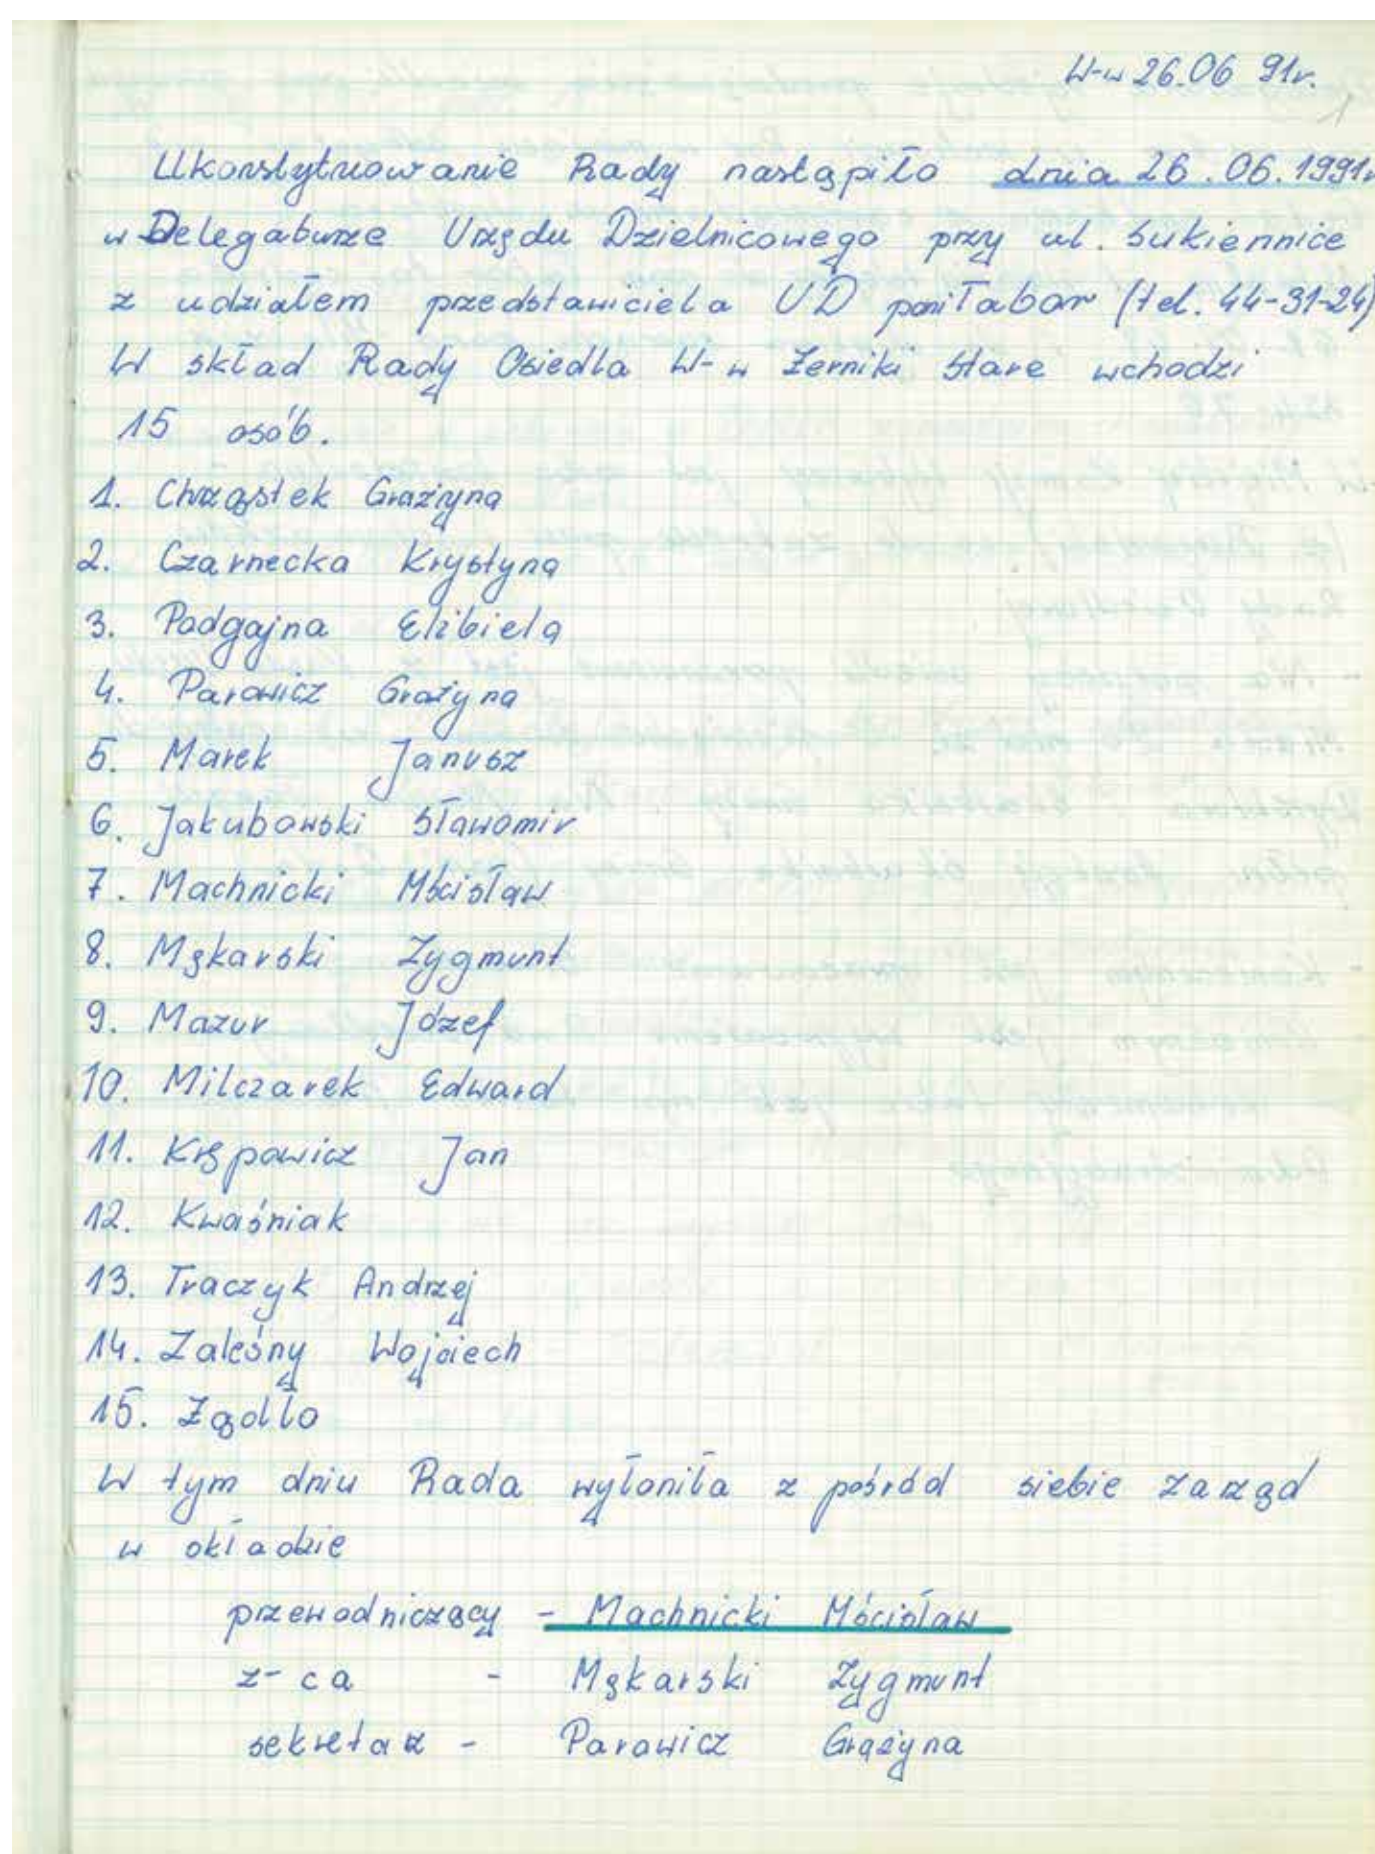 W-w 26.06 91r.
1
Ukonstytuowanie Rady nastąpiło dnia 26.06.1991r
w Delegaturze Urzędu Dzielnicowego przy ul. Sukiennice
z udziałem przedstawiciela UD pani Tabor (tel. 44-31-24)
W skład Rady Osiedla W-w Żerniki Stare wchodzi
15 osób.
1. Chrząstek Grażyna
2. Czarnecka Krystyna
3. Podgajna Elżbieta
4. Parowicz Grażyna
5. Marek Janusz
6. Jakubowski Sławomir
7. Machnicki Mścisław
8. Mękarski Zygmunt
9. Mazur Józef
10. Milczarek Edward
11. Kępowicz Jan
12. Kwaśniak
13. Traczyk Andrzej
14. Zaleśny Wojciech
15. Żądło
W tym dniu Rada wyłoniła z pośród siebie Zarząd
w składzie
przewodniczący - Machnicki Mścisław
z-ca - Mękarski Zygmunt
sekretarz - Parowicz Grażyna